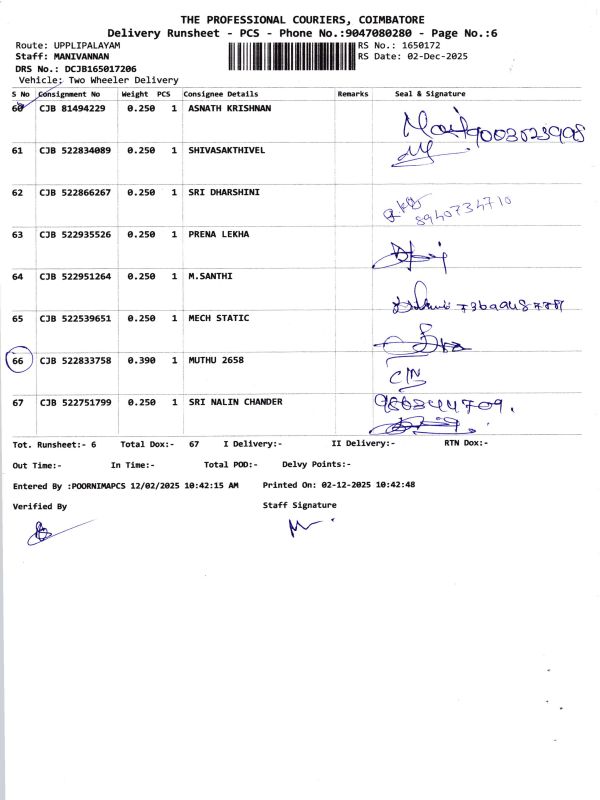 THE PROFESSIONAL COURIERS, COIMBATORE
Delivery Runsheet - PCS - Phone No.:9047080280 - Page No.:6
Route: UPPLIPALAYAM RS No.: 1650172
Staff: MANIVANNAN RS Date: 02-Dec-2025
DRS No.: DCJB165017206
Vehicle: Two Wheeler Delivery
S No Consignment No Weight PCS Consignee Details Remarks Seal & Signature
60 CJB 81494229 0.250 1 ASNATH KRISHNAN
61 CJB 522834089 0.250 1 SHIVASAKTHIVEL
62 CJB 522866267 0.250 1 SRI DHARSHINI
8940734710
63 CJB 522935526 0.250 1 PRENA LEKHA
64 CJB 522951264 0.250 1 M.SANTHI
65 CJB 522539651 0.250 1 MECH STATIC
66 CJB 522833758 0.390 1 MUTHU 2658
67 CJB 522751799 0.250 1 SRI NALIN CHANDER
Tot. Runsheet:- 6 Total Dox:- 67 I Delivery:- II Delivery:- RTN Dox:-
Out Time:- In Time:- Total POD:- Delvy Points:-
Entered By :POORNIMAPCS 12/02/2025 10:42:15 AM Printed On: 02-12-2025 10:42:48
Verified By Staff Signature